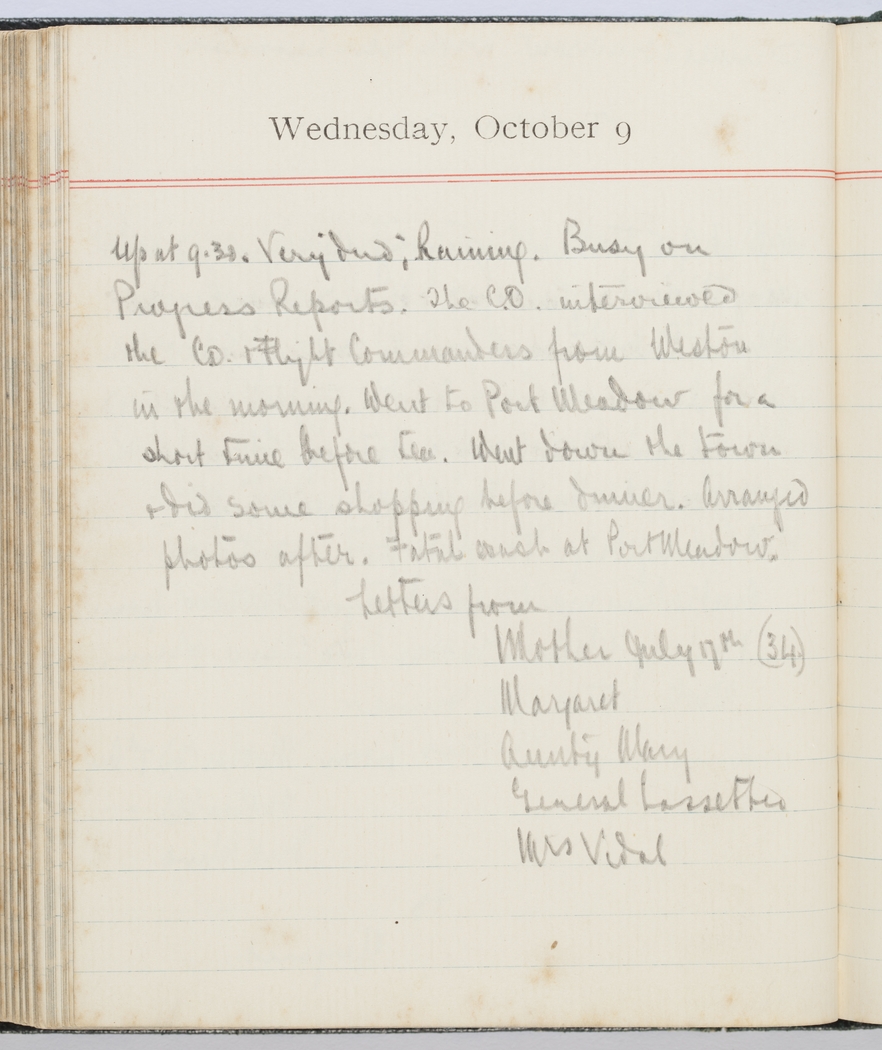 Wednesday, October 9
Up at 9.30. Very dud; Raining. Busy on
Progress Reports. The C.O. interviewed
the CO. & Flight Commanders from Weston
in the morning. Went to Port Meadow for a
short time before tea. Went down the town
& did some shopping before dinner. Arranged
photos after. Fatal crash at Port Meadow.
Letters from
Mother July 17th (34)
Margaret
Aunty Mary
General Lassetter
Mrs Vidal